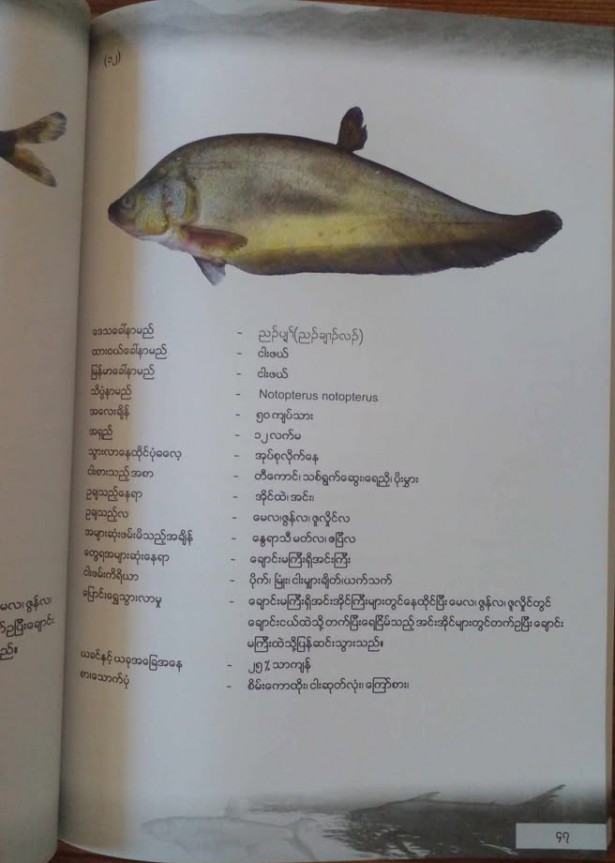 (၁၂)
ဒေသခေါ်နာမည် - ညဉ်ပျှ်(ညဉ်ချၢဉ်လဉ်)
ထားဝယ်ခေါ်နာမည် - ငါးဖယ်
မြန်မာခေါ်နာမည် - ငါးဖယ်
သိပ္ပံနာမည် - Notopterus notopterus
အလေးချိန် - ၅၀ ကျပ်သား
အရှည် - ၁၂ လက်မ
သွားလာနေထိုင်ပုံဓလေ့ - အုပ်စုလိုက်နေ
ငါးစားသည့်အစာ - တီကောင်၊ သစ်ရွက်ဆွေး၊ ရေညှိ၊ ပိုးမွှား
ဥချသည့်နေရာ - အိုင်ထဲ၊ အင်း၊
ဥချသည့်လ - မေလ၊ ဇွန်လ၊ ဇူလှိုင်လ
အများဆုံးဖမ်းမိသည့်အချိန် - နွေရာသီ မတ်လ၊ ဧပြီလ
တွေ့ရအများဆုံးနေရာ - ချောင်းမကြီးရှိအင်းကြီး
ငါးဖမ်းကိရိယာ - ပိုက်၊ မြှုံး၊ ငါးမျှားချိတ်၊ ယက်သက်
ပြောင်းရွှေ့သွားလာမှု - ချောင်းမကြီးရှိအင်းအိုင်ကြီးများတွင်နေထိုင်ပြီး မေလ၊ ဇွန်လ၊ ဇူလှိုင်တွင်
ချောင်းငယ်ထဲသို့ တက်ပြီးရေငြိမ်သည့် အင်းအိုင်များတွင်တက်ဥပြီး ချောင်း
မကြီးထဲသို့ပြန်ဆင်းသွားသည်။
ယခင်နှင့် ယခုအခြေအနေ - ၂၅ % သာကျန်
စားသောက်ပုံ - စိမ်းကောထိုး၊ ငါးဆုတ်လုံး၊ ကြော်စား၊
မေလ၊ ဇွန်လ၊
က်ဥပြီးချောင်း
သည်။
၄၇